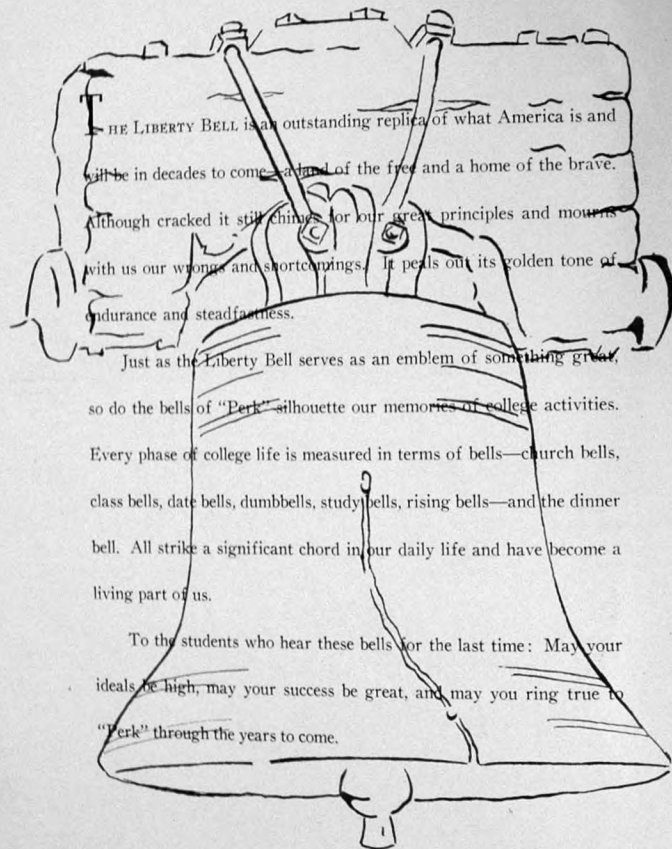 THE LIBERTY BELL is an outstanding replica of what America is and
will be in decades to come—a land of the free and a home of the brave.
Although cracked it still chimes for our great principles and mourns
with us our wrongs and shortcomings. It peals out its golden tone of
endurance and steadfastness.
Just as the Liberty Bell serves as an emblem of something great,
so do the bells of “Perk” silhouette our memories of college activities.
Every phase of college life is measured in terms of bells—church bells,
class bells, date bells, dumbbells, study bells, rising bells—and the dinner
bell. All strike a significant chord in our daily life and have become a
living part of us.
To the students who hear these bells for the last time: May your
ideals be high, may your success be great, and may you ring true to
“Perk” through the years to come.